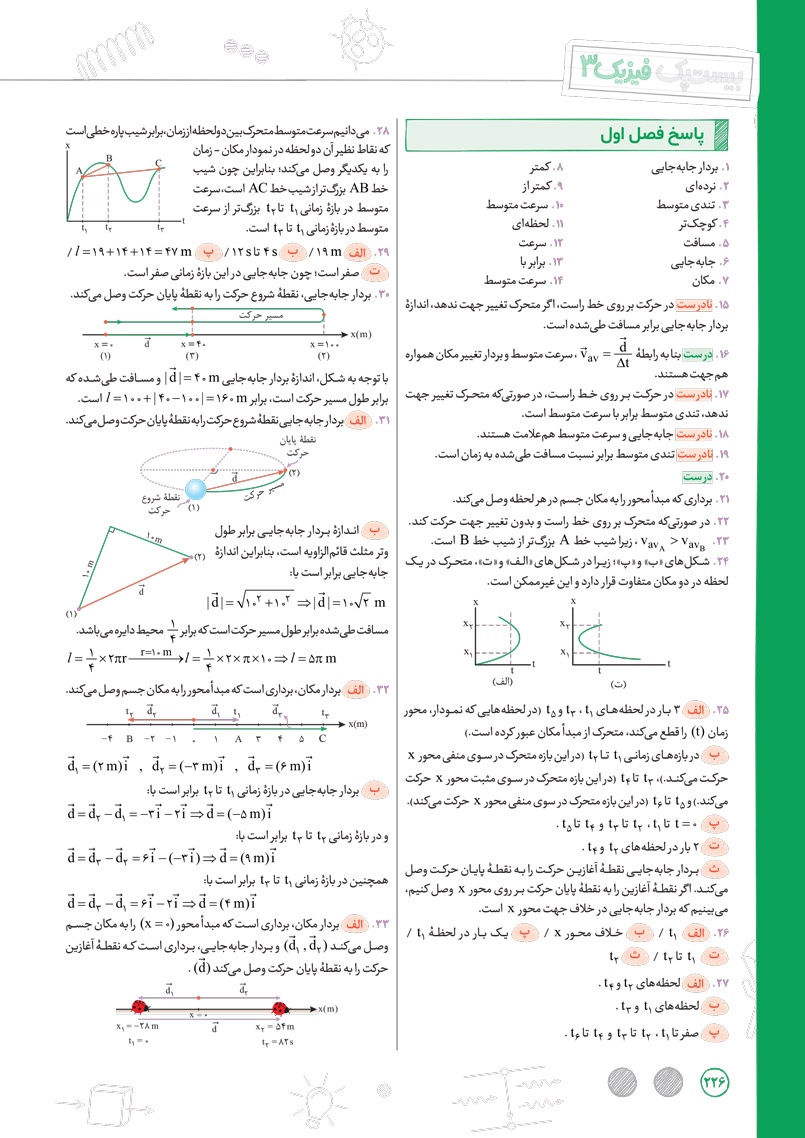 بیست‌پک فیزیک ۳
پاسخ فصل اول
۱. بردار جابه‌جایی
۲. نرده‌ای
۳. تندی متوسط
۴. کوچک‌تر
۵. مسافت
۶. جابه‌جایی
۷. مکان
۸. کمتر
۹. کمتر از
۱۰. سرعت متوسط
۱۱. لحظه‌ای
۱۲. سرعت
۱۳. برابر با
۱۴. سرعت متوسط
۱۵. نادرست در حرکت بر روی خط راست، اگر متحرک تغییر جهت ندهد، اندازهٔ
بردار جابه‌جایی برابر مسافت طی‌شده است.
۱۶. درست بنا به رابطهٔ v⃗av = d⃗/Δt ، سرعت متوسط و بردار تغییر مکان همواره
هم‌جهت هستند.
۱۷. نادرست در حرکت بر روی خط راست، در صورتی‌که متحرک تغییر جهت
ندهد، تندی متوسط برابر با سرعت متوسط است.
۱۸. نادرست جابه‌جایی و سرعت متوسط هم‌علامت هستند.
۱۹. نادرست تندی متوسط برابر نسبت مسافت طی‌شده به زمان است.
۲۰. درست
۲۱. برداری که مبدأ محور را به مکان جسم در هر لحظه وصل می‌کند.
۲۲. در صورتی‌که متحرک بر روی خط راست و بدون تغییر جهت حرکت کند.
۲۳. vavA > vavB ، زیرا شیب خط A بزرگ‌تر از شیب خط B است.
۲۴. شکل‌های «ب» و «پ»؛ زیرا در شکل‌های «الف» و «ت»، متحرک در یک
لحظه در دو مکان متفاوت قرار دارد و این غیرممکن است.
x
x۲
x۱
t
(الف)
x
x۲
x۱
t
(ت)
۲۵. الف ۳ بار در لحظه‌های t۱، t۳ و t۵ (در لحظه‌هایی که نمودار، محور
زمان (t) را قطع می‌کند، متحرک از مبدأ مکان عبور کرده است.)
ب در بازه‌های زمانی t۱ تا t۲ (در این بازه متحرک در سوی منفی محور x
حرکت می‌کند.)، t۳ تا t۴ (در این بازه متحرک در سوی مثبت محور x حرکت
می‌کند.) و t۵ تا t۶ (در این بازه متحرک در سوی منفی محور x حرکت می‌کند).
پ t = ۰ تا t۱، t۲ تا t۳ و t۴ تا t۵ .
ت ۲ بار در لحظه‌های t۲ و t۴ .
ث بردار جابه‌جایی نقطهٔ آغازین حرکت را به نقطهٔ پایان حرکت وصل
می‌کند. اگر نقطهٔ آغازین را به نقطهٔ پایان حرکت بر روی محور x وصل کنیم،
می‌بینیم که بردار جابه‌جایی در خلاف جهت محور x است.
۲۶. الف t۱ / ب خلاف محور x / پ یک بار در لحظهٔ t۱ /
ت t۱ تا t۲ / ث t۲
۲۷. الف لحظه‌های t۲ و t۴ .
ب لحظه‌های t۱ و t۳ .
پ صفر تا t۱، t۲ تا t۳ و t۴ تا t۶ .
۲۸. می‌دانیم سرعت متوسط متحرک بین دو لحظه از زمان، برابر شیب پاره‌خطی است
که نقاط نظیر آن دو لحظه در نمودار مکان - زمان
را به یکدیگر وصل می‌کند؛ بنابراین چون شیب
خط AB بزرگ‌تر از شیب خط AC است، سرعت
متوسط در بازهٔ زمانی t۱ تا t۲ بزرگ‌تر از سرعت
متوسط در بازهٔ زمانی t۱ تا t۳ است.
x
A B C
t۱ t۲ t۳ t
۲۹. الف ۱۹ m / ب ۴ s تا ۱۲ s / پ l = ۱۹+۱۴+۱۴ = ۴۷ m /
ت صفر است؛ چون جابه‌جایی در این بازهٔ زمانی صفر است.
۳۰. بردار جابه‌جایی، نقطهٔ شروع حرکت را به نقطهٔ پایان حرکت وصل می‌کند.
مسیر حرکت
x(m)
x = ۰ d⃗ x = ۴۰ x = ۱۰۰
(۱) (۳) (۲)
با توجه به شکل، اندازهٔ بردار جابه‌جایی |d⃗| = ۴۰ m و مسافت طی‌شده که
برابر طول مسیر حرکت است، برابر l = ۱۰۰+|۴۰−۱۰۰| = ۱۶۰ m است.
۳۱. الف بردار جابه‌جایی نقطهٔ شروع حرکت را به نقطهٔ پایان حرکت وصل می‌کند.
نقطهٔ پایان
حرکت
(۲)
d⃗
مسیر حرکت
نقطهٔ شروع
حرکت
(۱)
ب اندازهٔ بردار جابه‌جایی برابر طول
وتر مثلث قائم‌الزاویه است، بنابراین اندازهٔ
جابه‌جایی برابر است با:
۱۰ m
۱۰ m
(۲)
d⃗
(۱)
|d⃗| = √(۱۰² + ۱۰²) ⇒ |d⃗| = ۱۰√۲ m
مسافت طی‌شده برابر طول مسیر حرکت است که برابر ۱/۴ محیط دایره می‌باشد.
l = ۱/۴ × ۲πr —r=۱۰ m→ l = ۱/۴ × ۲ × π × ۱۰ ⇒ l = ۵π m
۳۲. الف بردار مکان، برداری است که مبدأ محور را به مکان جسم وصل می‌کند.
t۲ d⃗۲ d⃗۱ t۱ d⃗۳ t۳
x(m)
−۴ B −۲ −۱ ۰ ۱ A ۳ ۴ ۵ C
d⃗۱ = (۲ m)i⃗ , d⃗۲ = (−۳ m)i⃗ , d⃗۳ = (۶ m)i⃗
ب بردار جابه‌جایی در بازهٔ زمانی t۱ تا t۲ برابر است با:
d⃗ = d⃗۲ − d⃗۱ = −۳i⃗ − ۲i⃗ ⇒ d⃗ = (−۵ m)i⃗
و در بازهٔ زمانی t۲ تا t۳ برابر است با:
d⃗ = d⃗۳ − d⃗۲ = ۶i⃗ − (−۳i⃗) ⇒ d⃗ = (۹ m)i⃗
همچنین در بازهٔ زمانی t۱ تا t۳ برابر است با:
d⃗ = d⃗۳ − d⃗۱ = ۶i⃗ − ۲i⃗ ⇒ d⃗ = (۴ m)i⃗
۳۳. الف بردار مکان، برداری است که مبدأ محور (x = ۰) را به مکان جسم
وصل می‌کند (d⃗۱, d⃗۲) و بردار جابه‌جایی، برداری است که نقطهٔ آغازین
حرکت را به نقطهٔ پایان حرکت وصل می‌کند (d⃗) .
d⃗۱ d⃗۲
x(m)
x = ۰
x۱ = −۲۸ m d⃗ x۲ = ۵۴ m
t۱ = ۰ t۲ = ۸۲ s
۲۲۶